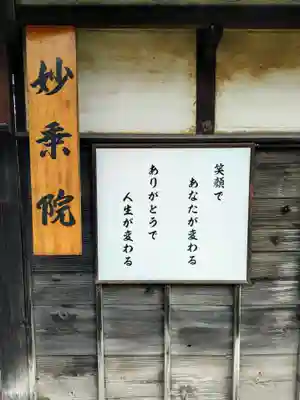 妙乗院
笑顔で
あなたが変わる
ありがとうで
人生が変わる